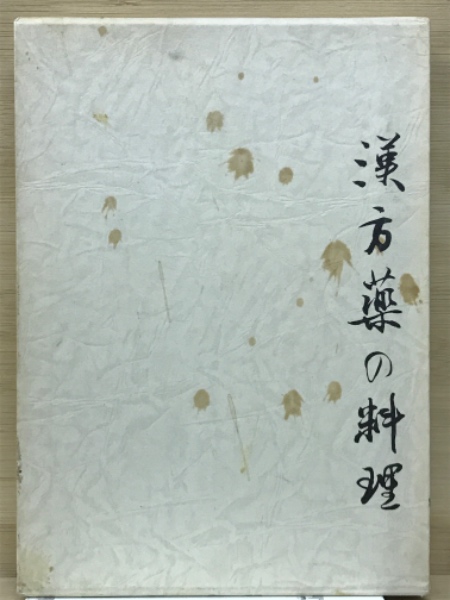 漢方薬の料理